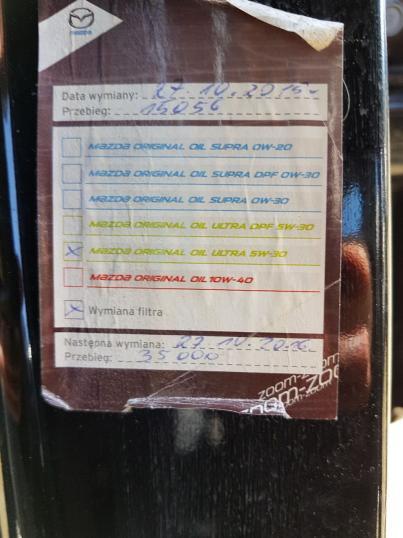 mazda
Data wymiany: 27.10.2015
Przebieg: 15056
MAZDA ORIGINAL OIL SUPRA 0W-20
MAZDA ORIGINAL OIL SUPRA DPF 0W-30
MAZDA ORIGINAL OIL SUPRA 0W-30
MAZDA ORIGINAL OIL ULTRA DPF 5W-30
X MAZDA ORIGINAL OIL ULTRA 5W-30
MAZDA ORIGINAL OIL 10W-40
X Wymiana filtra
Następna wymiana: 27.10.2016
Przebieg: 35000
zoom-zoom
zoom-zoo